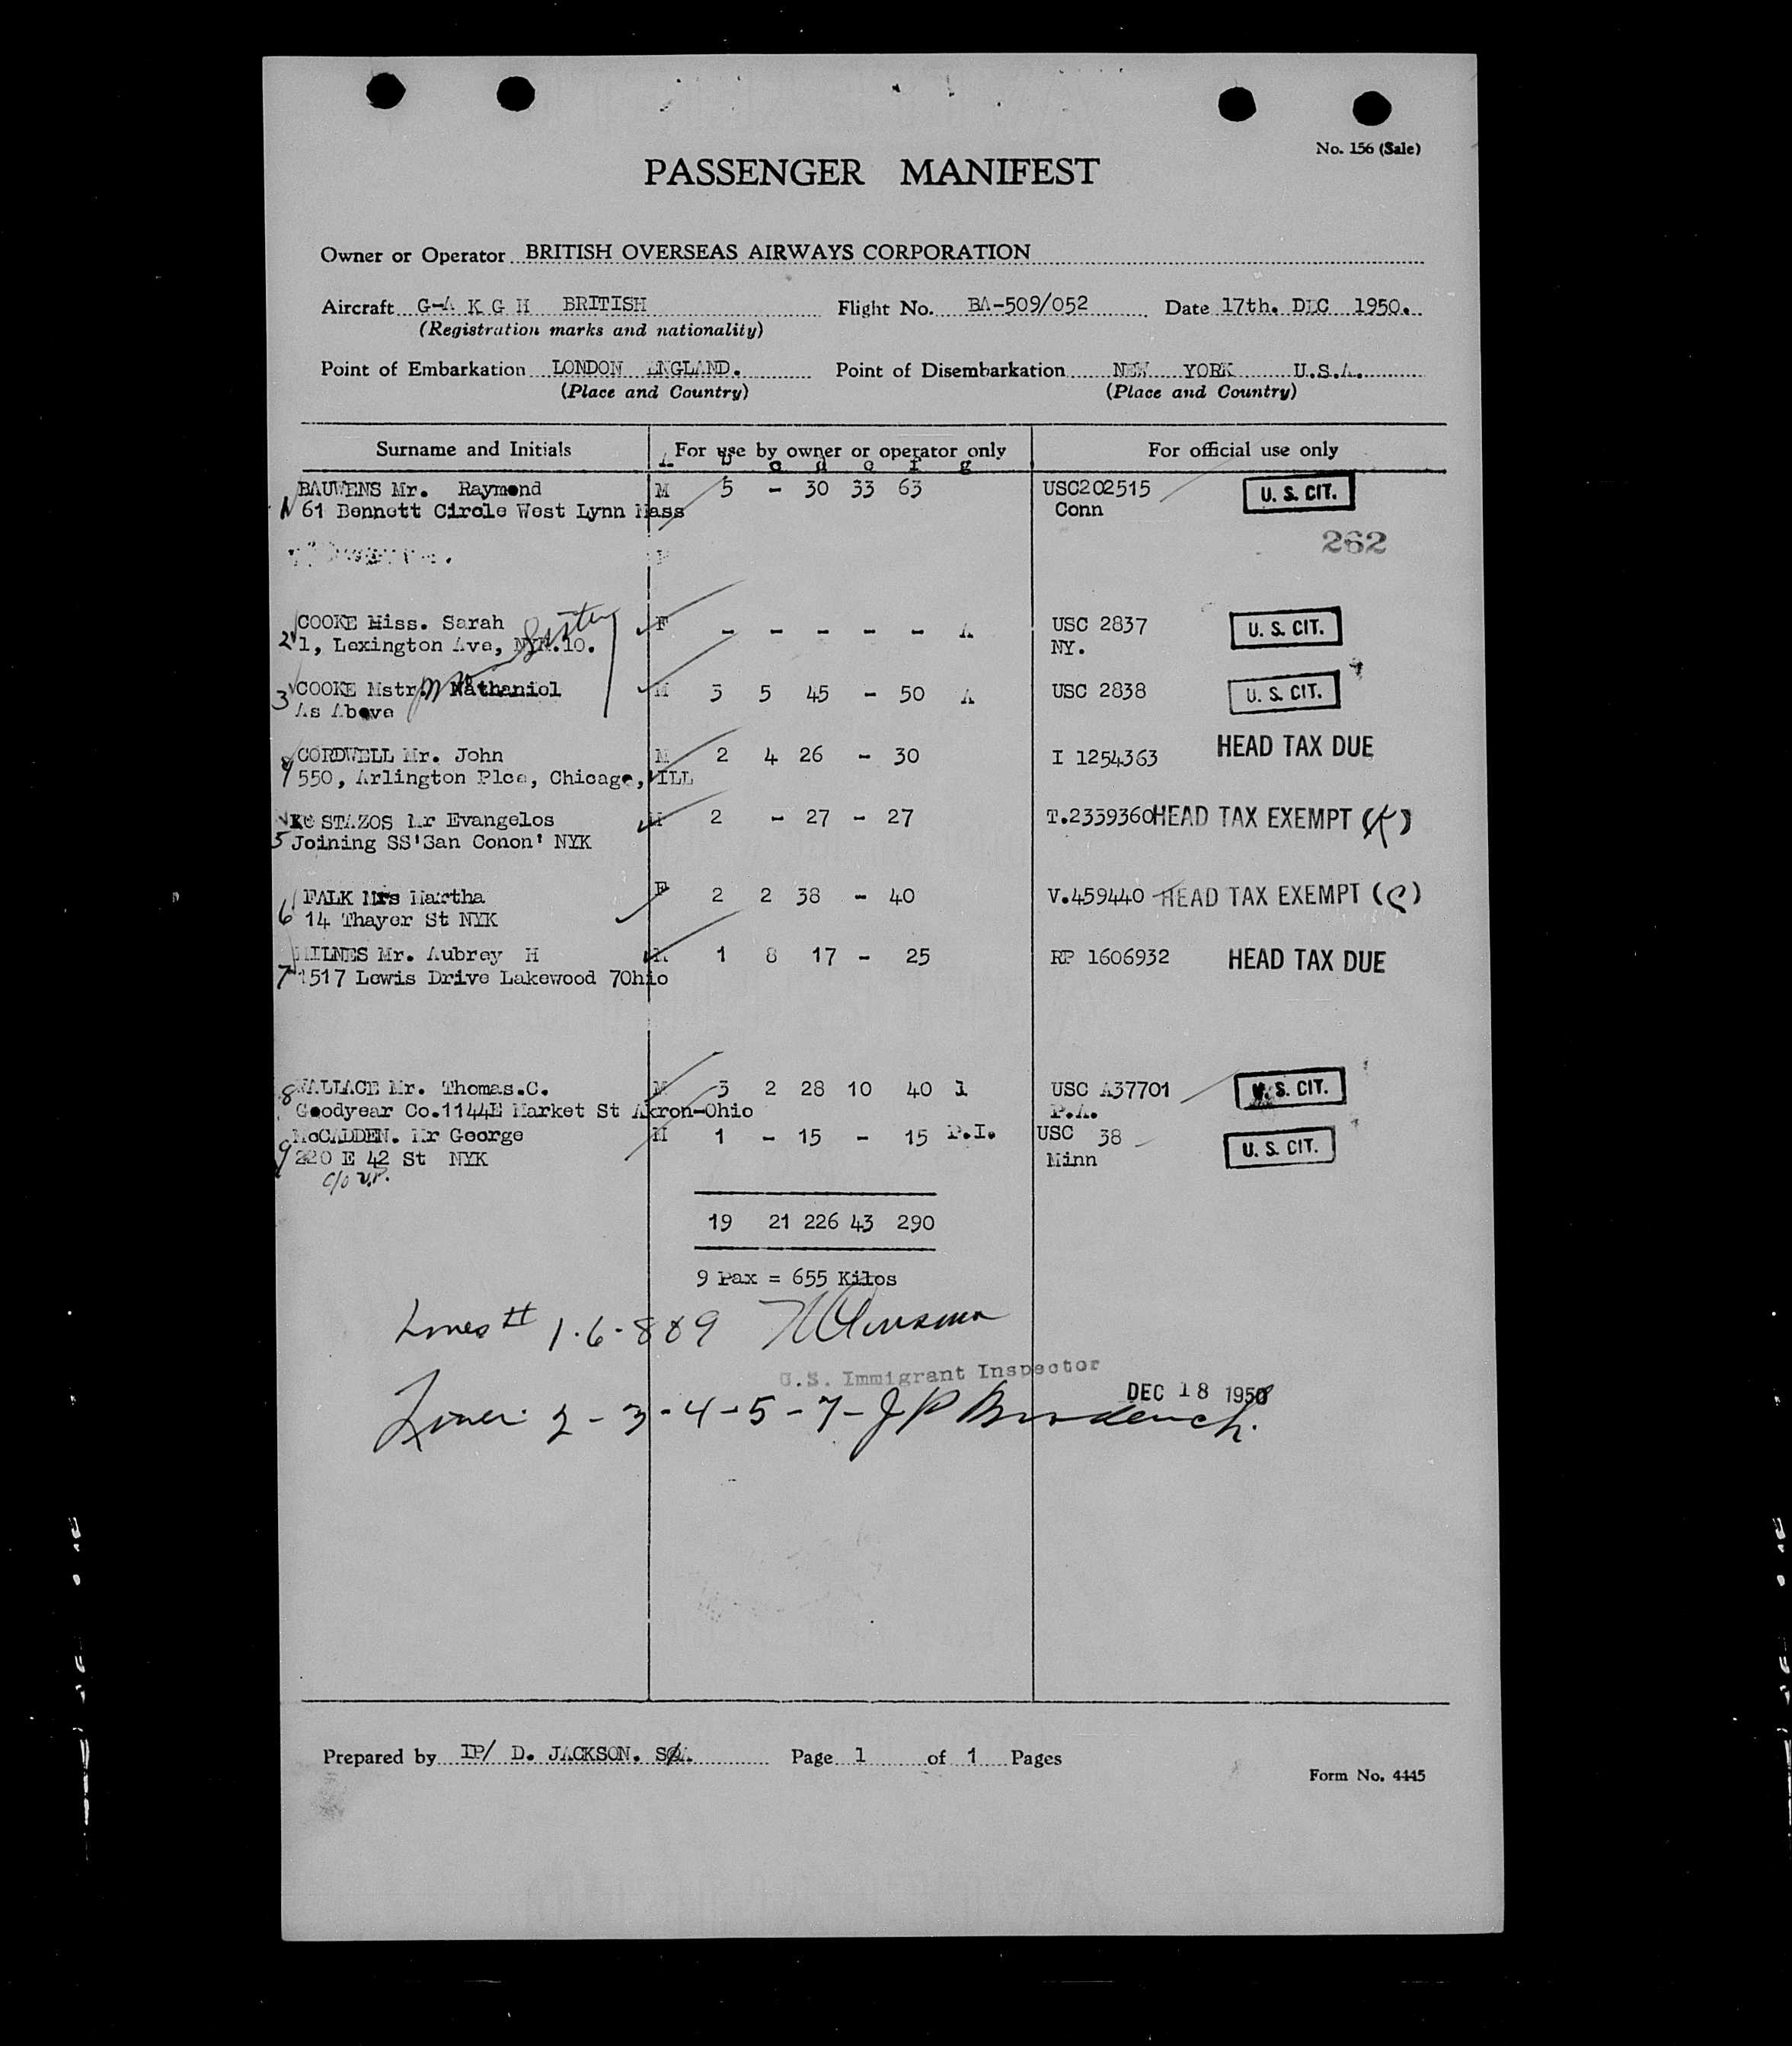 No. 156 (Sale)
PASSENGER MANIFEST
Owner or Operator BRITISH OVERSEAS AIRWAYS CORPORATION
Aircraft G-A K G H BRITISH Flight No. BA-509/052 Date 17th. DEC 1950.
(Registration marks and nationality)
Point of Embarkation LONDON ENGLAND. Point of Disembarkation NEW YORK U.S.A.
(Place and Country) (Place and Country)
Surname and Initials For use by owner or operator only For official use only
A b c d e f g
BAUWENS Mr. Raymond M 5 - 30 33 63 USC202515 U. S. CIT.
61 Bennett Circle West Lynn Mass Conn
262
COOKE Miss. Sarah F - - - - - A USC 2837 U. S. CIT.
2 1, Lexington Ave, NYK.10. Sister NY.
3 COOKE Mstr. Nathaniol M 3 5 45 - 50 A USC 2838 U. S. CIT.
As Above
CORDWELL Mr. John M 2 4 26 - 30 I 1254363 HEAD TAX DUE
4 550, Arlington Plce, Chicage, ILL
STAZOS Mr Evangelos M 2 - 27 - 27 T.2339360 HEAD TAX EXEMPT (K)
5 Joining SS'San Conon' NYK
FALK Mrs Martha F 2 2 38 - 40 V.459440 HEAD TAX EXEMPT (C)
6 14 Thayer St NYK
MILNES Mr. Aubrey H M 1 8 17 - 25 RP 1606932 HEAD TAX DUE
7 1517 Lewis Drive Lakewood 7Ohio
8 WALLACE Mr. Thomas.C. M 3 2 28 10 40 1 USC A37701 U. S. CIT.
Goodyear Co.1144E Market St Akron-Ohio P.A.
McCADDEN. Mr George M 1 - 15 - 15 P.I. USC 38 U. S. CIT.
9 220 E 42 St NYK Minn
c/o V.P.
19 21 226 43 290
9 Pax = 655 Kilos
Lines # 1-6-8&9
U.S. Immigrant Inspector
DEC 18 1950
Lines 2-3-4-5-7- J P
Prepared by IP/ D. JACKSON. SOA Page 1 of 1 Pages
Form No. 4445